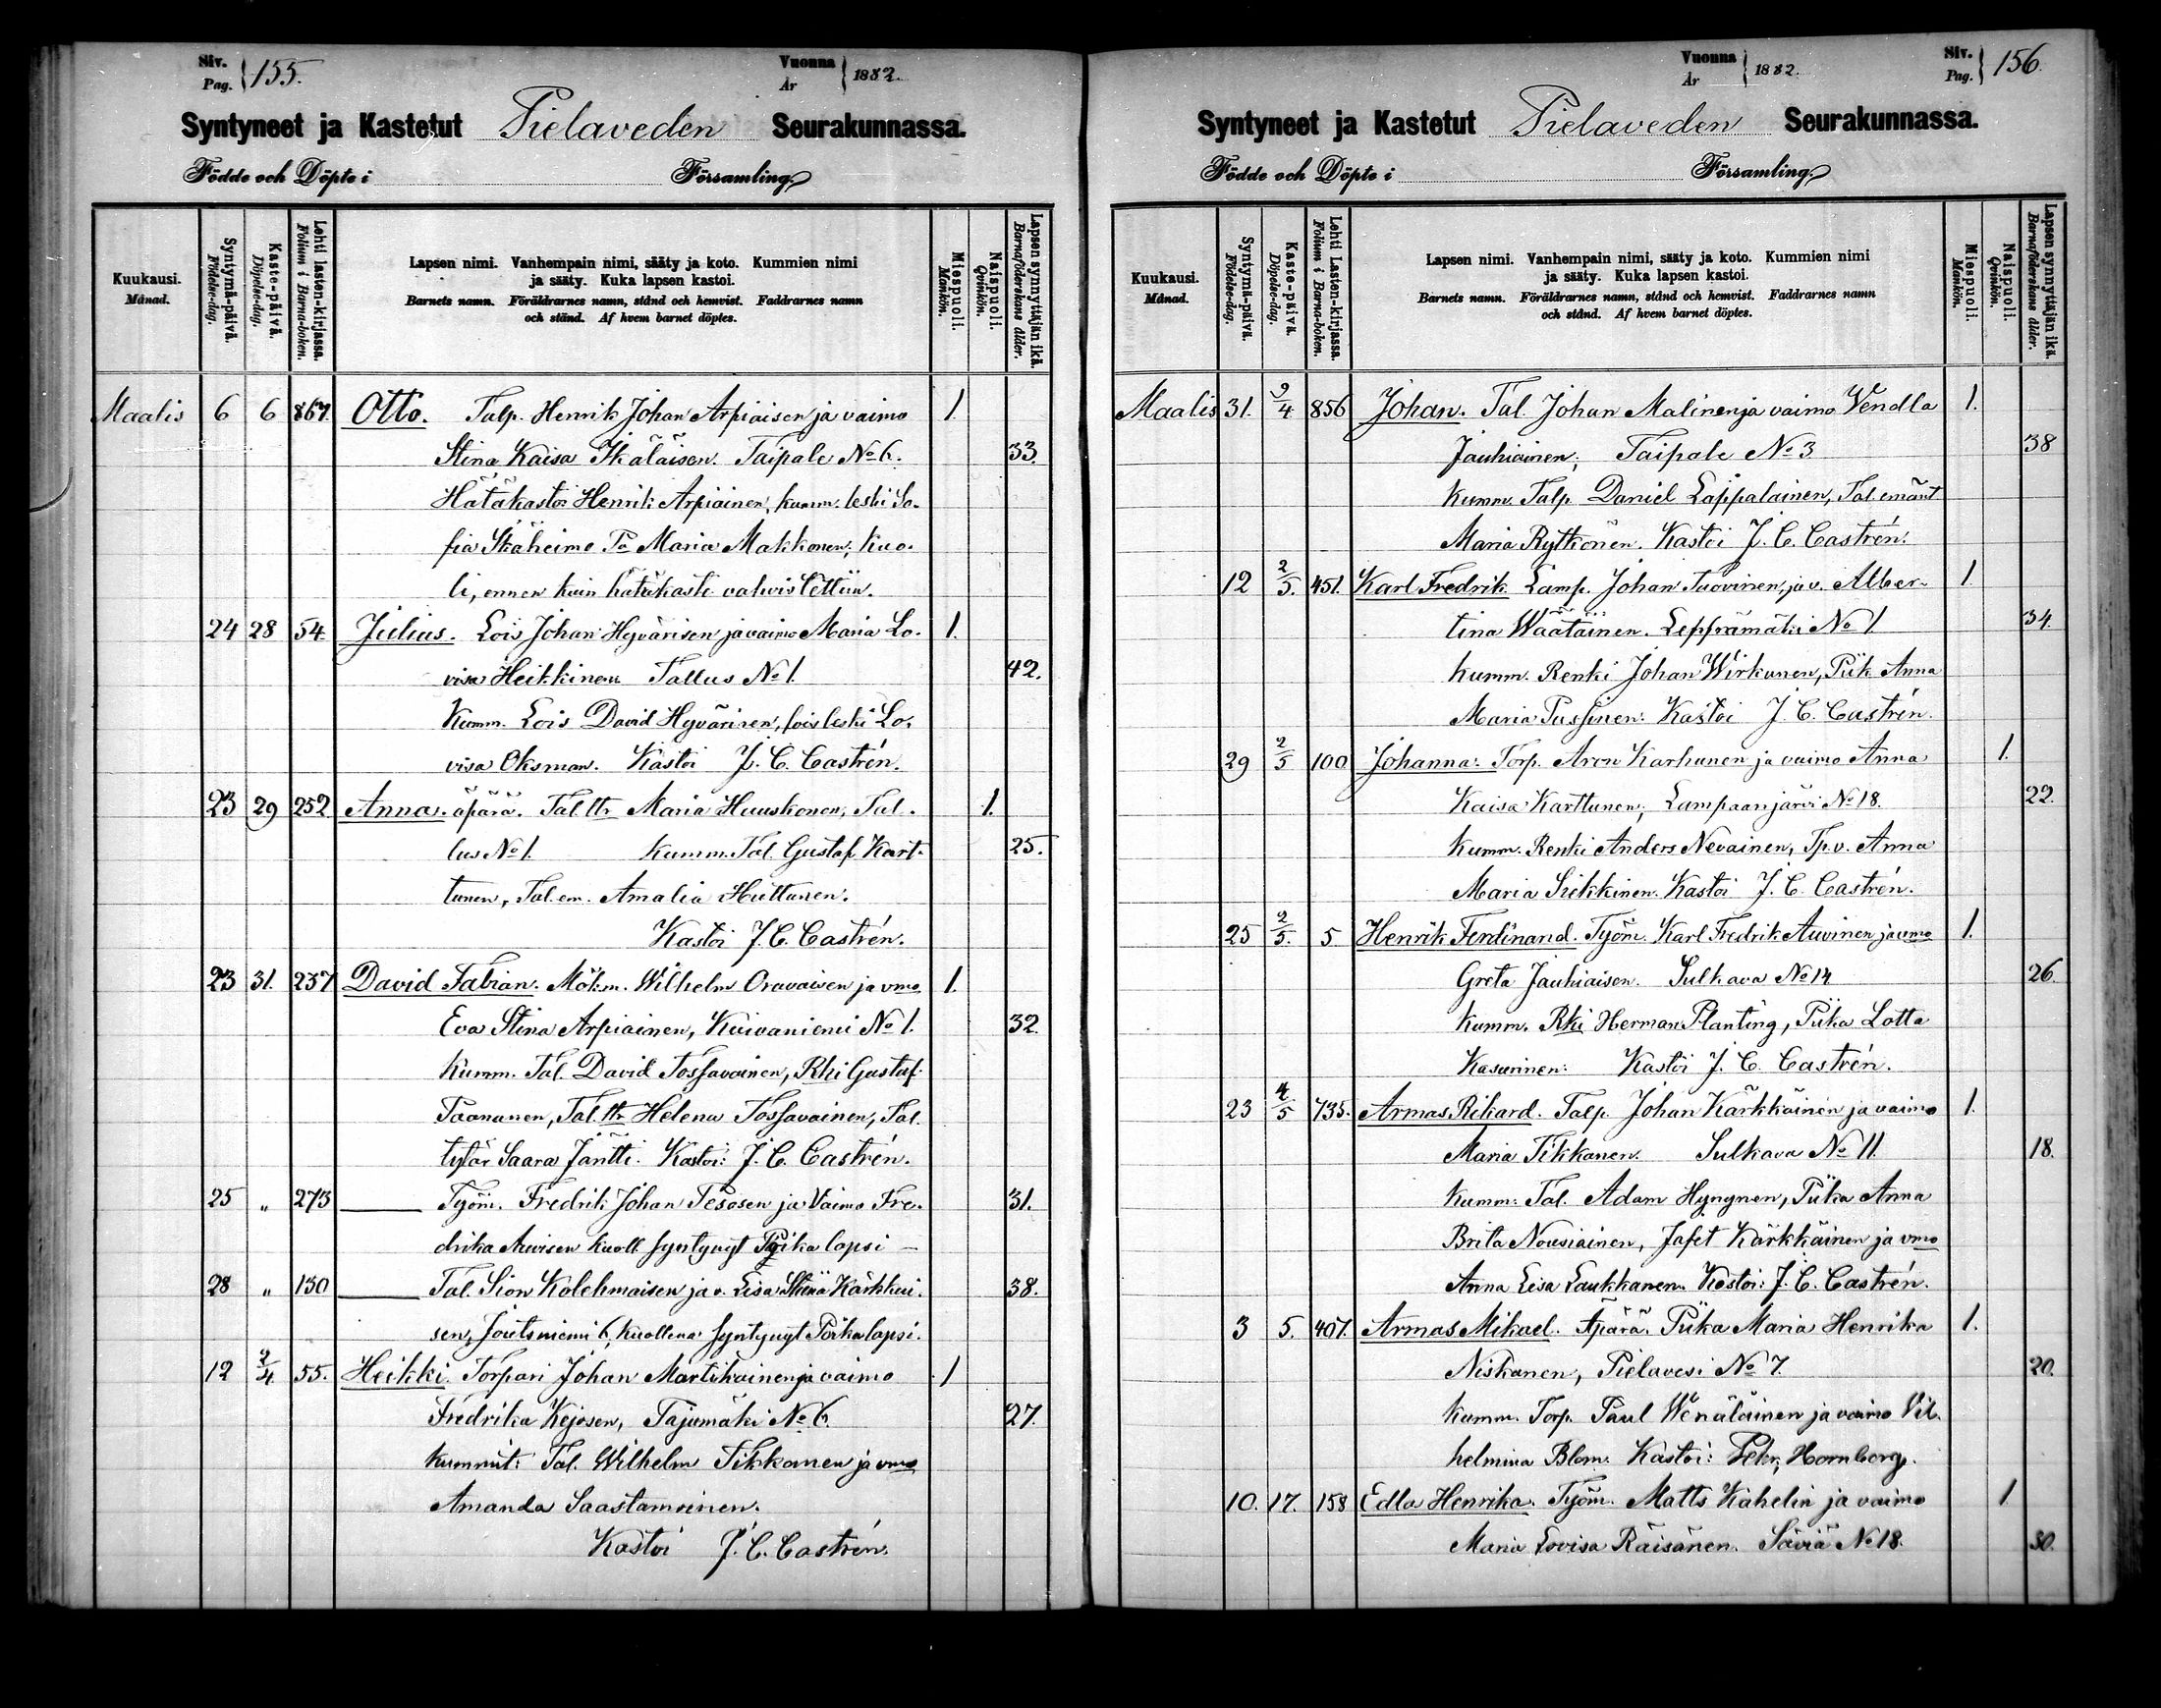 Siv.
Pag. 155.
Vuonna
År 1882.
Syntyneet ja Kastetut Pielaveden Seurakunnassa.
Födde och Döpte i Församling.
Kuukausi.
Månad.
Syntymä-päivä.
Födelse-dag.
Kaste-päivä.
Döpelse-dag.
Lehti lasten-kirjassa.
Folium i Barna-boken.
Lapsen nimi. Vanhempain nimi, sääty ja koto. Kummien nimi
ja sääty. Kuka lapsen kastoi.
Barnets namn. Föräldrarnes namn, stånd och hemvist. Faddrarnes namn
och stånd. Af hvem barnet döptes.
Miespuoli.
Mankön.
Naispuoli.
Qvinkön.
Lapsen synnyttäjän ikä.
Barnaföderskans ålder.
Maalis 6 6 867. Otto. Talp. Henrik Johan Arpiaisen ja vaimo 1.
Stina Kaisa Ikäläisen. Taipale No 6. 33.
Hätäkastoi Henrik Arpiainen, kumm. leski So-
fia Ståheimo Maria Makkonen; kuo-
li, ennen kuin hätäkaste vahvistettiin.
24 28 54. Julius. Lois Johan Hyvärisen ja vaimo Maria Lo- 1.
visa Heikkinen Tallus No 1. 42.
Kumm. Lois David Hyvärinen, lois leski Lo-
visa Oksman. Kastoi J. C. Castrén.
23 29 252. Anna. äpärä. Tal. ttr Maria Huuskonen, Tal- 1.
lus No 1. Kumm. Tal. Gustaf Kart- 25.
tunen, Tal. em. Amalia Huttunen.
Kastoi J. C. Castrén.
23 31. 237 David Fabian. Mökm. Wilhelm Oravaisen ja vmo 1.
Eva Stina Arpiainen, Kuivaniemi No 1. 32.
Kumm. Tal. David Tossavainen, Rki Gustaf
Paananen, Tal. ttr Helena Tossavainen, Tal.
tytär Saara Jäntti. Kastoi: J. C. Castrén.
25 " 273 Työm. Fredrik Johan Pesosen ja Vaimo Fre- 31.
drika Auvisen kuoll. syntynyt Poika lapsi
28 " 130 Tal. Sion Kolehmaisen ja v. Lisa Stina Kärkkäi- 38.
sen, Joutsniemi 6, kuollena syntynyt Poikalapsi.
12 2/4 55. Heikki. Torpari Johan Martikainen ja vaimo 1
Fredrika Kejosen, Tajumäki No 6. 27.
Kummit: Tal. Wilhelm Tikkanen ja vmo
Amanda Saastamoinen.
Kastoi J. C. Castrén.
Vuonna
År 1882.
Siv.
Pag. 156.
Syntyneet ja Kastetut Pielaveden Seurakunnassa.
Födde och Döpte i Församling.
Kuukausi.
Månad.
Syntymä-päivä.
Födelse-dag.
Kaste-päivä.
Döpelse-dag.
Lehti Lasten-kirjassa.
Folium i Barna-boken.
Lapsen nimi. Vanhempain nimi, sääty ja koto. Kummien nimi
ja sääty. Kuka lapsen kastoi.
Barnets namn. Föräldrarnes namn, stånd och hemvist. Faddrarnes namn
och stånd. Af hvem barnet döptes.
Miespuoli.
Mankön.
Naispuoli.
Qvinkön.
Lapsen synnyttäjän ikä.
Barnaföderskans ålder.
Maalis 31. 9/4 856 Johan. Tal. Johan Malinen ja vaimo Wendla 1.
Jauhiainen; Taipale No 3 38
Kumm. Talp. Daniel Lappalainen, Tal. emänt
Maria Rytkönen. Kastoi J. C. Castrén.
12 2/5. 451. Karl Fredrik Lamp. Johan Tuovinen, ja v. Alber- 1.
tina Wäätäinen. Leppämäki No 1 34.
Kumm. Renki Johan Wirkunen, Piik. Anna
Maria Pussinen: Kastoi J. C. Castrén.
29 2/5 100 Johanna: Torp. Aron Karhunen ja vaimo Anna 1.
Kaisa Karttunen; Lampaanjärvi No 18. 22.
Kumm. Renki Anders Nevainen, Tp. v. Anna
Maria Sikkinen. Kastoi J. C. Castrén.
25 2/5. 5 Henrik Ferdinand. Työm. Karl Fredrik Auvinen ja vmo 1.
Greta Jauhiaisen. Sulkava No 14 26.
Kumm. Rki Herman Planting, Piika Lotta
Kasurinen: Kastoi J. C. Castrén.
23 4/5 735. Armas Rikard. Talp. Johan Kärkkäinen ja vaimo 1.
Maria Tikkanen. Sulkava No 11. 18.
Kumm: Tal. Adam Hyngnen, Piika Anna
Brita Nousiainen, Jafet Kärkkäinen ja vmo
Anna Lisa Laukkanen. Kastoi: J. C. Castrén.
3 5. 407. Armas Mikael. Äpärä. Piika Maria Henrika 1.
Niskanen, Pielavesi No 7. 20.
Kumm. Torp. Paul Wenäläinen ja vaimo Vil-
helmina Blom. Kastoi: Hornborg.
10. 17. 158 Edla Henrika. Työm. Matts Kahelin ja vaimo 1
Maria Lovisa Räisänen. Säviä No 18. 30.